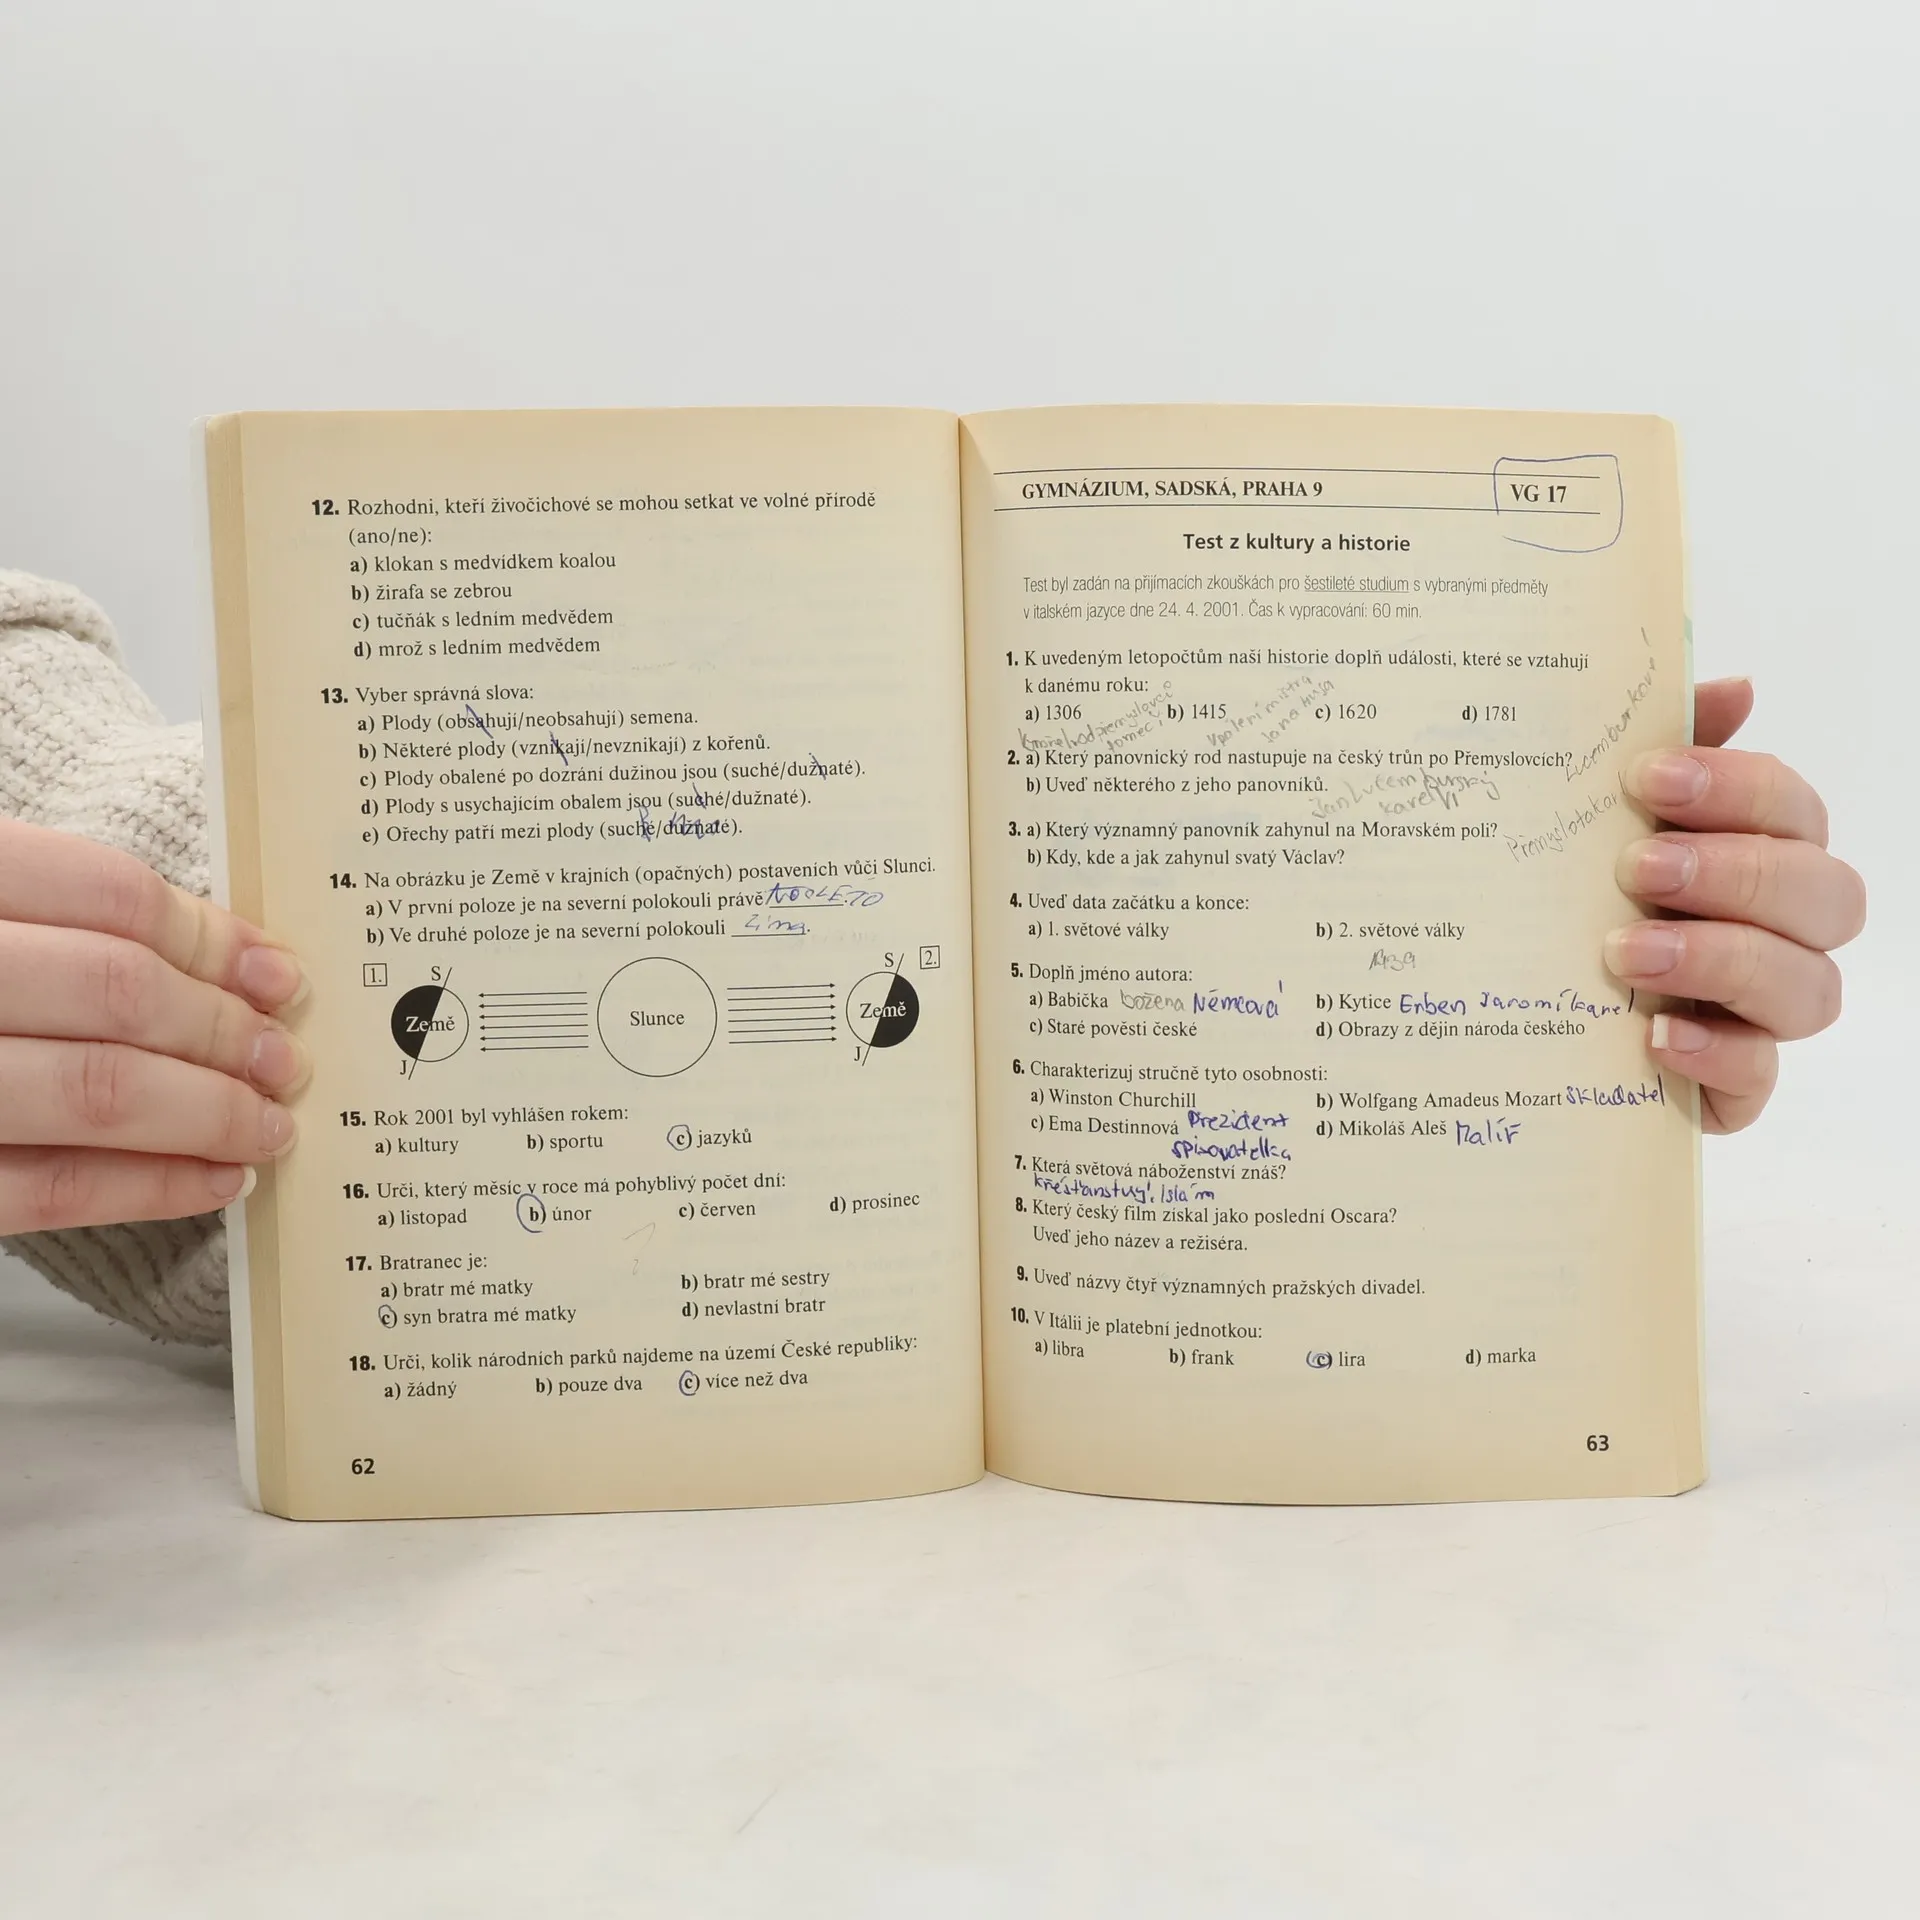 12. Rozhodni, kteří živočichové se mohou setkat ve volné přírodě
(ano/ne):
a) klokan s medvídkem koalou
b) žirafa se zebrou
c) tučňák s ledním medvědem
d) mrož s ledním medvědem
13. Vyber správná slova:
a) Plody (obsahují/neobsahují) semena.
b) Některé plody (vznikají/nevznikají) z kořenů.
c) Plody obalené po dozrání dužinou jsou (suché/dužnaté).
d) Plody s usychajícím obalem jsou (suché/dužnaté).
e) Ořechy patří mezi plody (suché/dužnaté).
14. Na obrázku je Země v krajních (opačných) postaveních vůči Slunci.
a) V první poloze je na severní polokouli právě
b) Ve druhé poloze je na severní polokouli zima.
1. S Země J
Slunce
S 2. Země J
15. Rok 2001 byl vyhlášen rokem:
a) kultury b) sportu c) jazyků
16. Urči, který měsíc v roce má pohyblivý počet dní:
a) listopad b) únor c) červen d) prosinec
17. Bratranec je:
a) bratr mé matky b) bratr mé sestry
c) syn bratra mé matky d) nevlastní bratr
18. Urči, kolik národních parků najdeme na území České republiky:
a) žádný b) pouze dva c) více než dva
62
GYMNÁZIUM, SADSKÁ, PRAHA 9 VG 17
Test z kultury a historie
Test byl zadán na přijímacích zkouškách pro šestileté studium s vybranými předměty
v italském jazyce dne 24. 4. 2001. Čas k vypracování: 60 min.
1. K uvedeným letopočtům naší historie doplň události, které se vztahují
k danému roku:
a) 1306 b) 1415 c) 1620 d) 1781
upálení mistra
Jana Husa
2. a) Který panovnický rod nastupuje na český trůn po Přemyslovcích?
b) Uveď některého z jeho panovníků.
Jan Lucemburský
Karel VI
3. a) Který významný panovník zahynul na Moravském poli?
b) Kdy, kde a jak zahynul svatý Václav?
4. Uveď data začátku a konce:
a) 1. světové války b) 2. světové války
1939
5. Doplň jméno autora:
a) Babička božena Němcová b) Kytice Erben Jaromí karel
c) Staré pověsti české d) Obrazy z dějin národa českého
6. Charakterizuj stručně tyto osobnosti:
a) Winston Churchill b) Wolfgang Amadeus Mozart skladatel
Prezident
c) Ema Destinnová d) Mikoláš Aleš Malíř
spisovatelka
7. Která světová náboženství znáš?
křesťanství, Islám
8. Který český film získal jako poslední Oscara?
Uveď jeho název a režiséra.
9. Uveď názvy čtyř významných pražských divadel.
10. V Itálii je platební jednotkou:
a) libra b) frank c) lira d) marka
63